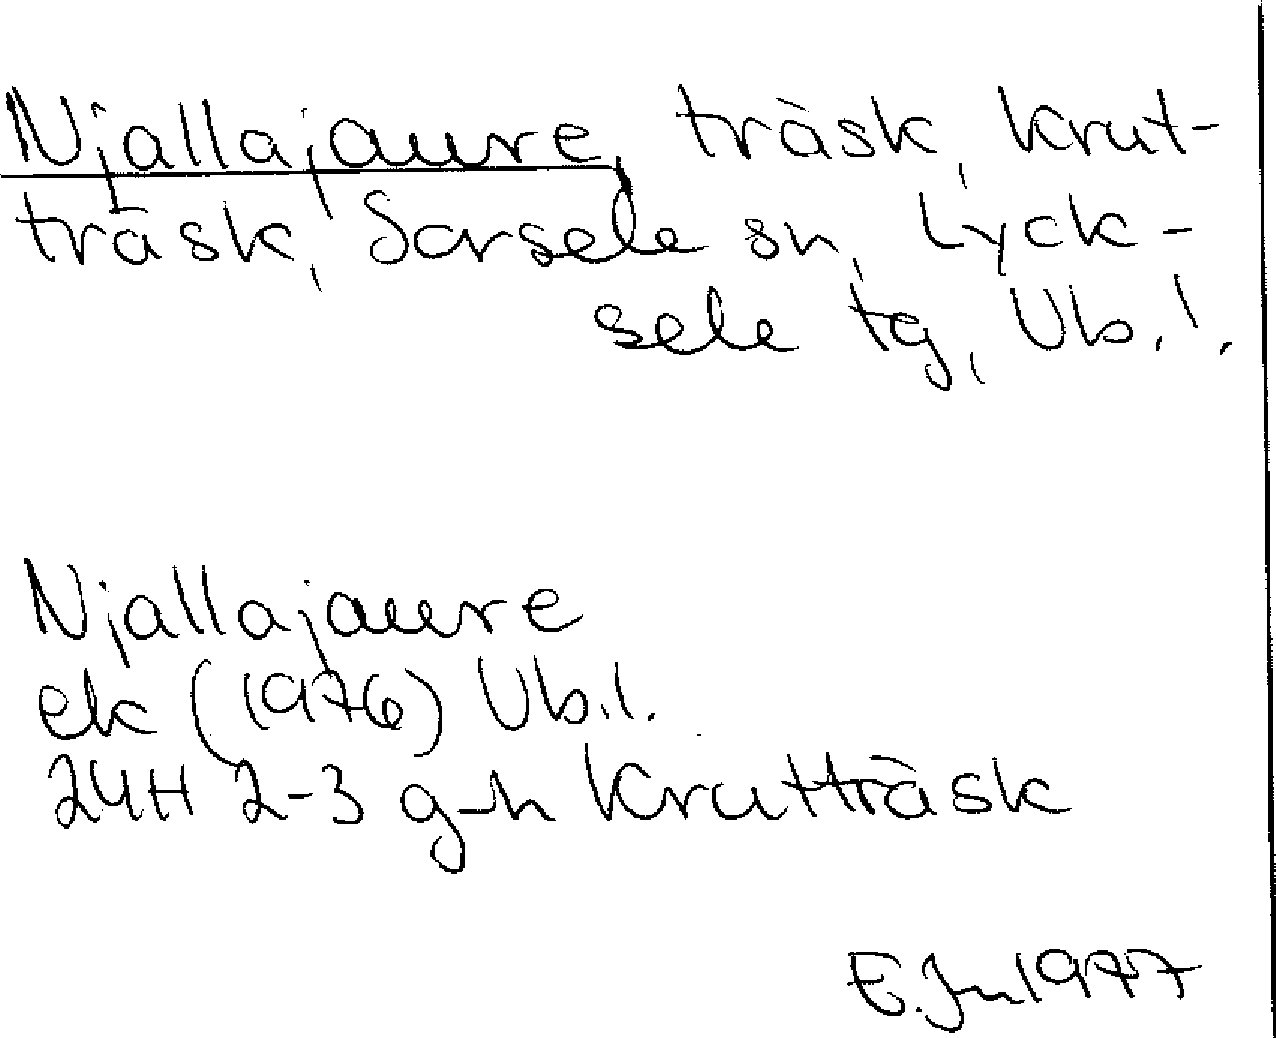 Njallajaure, träsk, Krut-
träsk, Sorsele sn, Lyck-
sele tg, Vb.l.
Njallajaure
ek (1976) Vb.l.
24H 2-3 g-h Krutträsk
E.Jn 1977